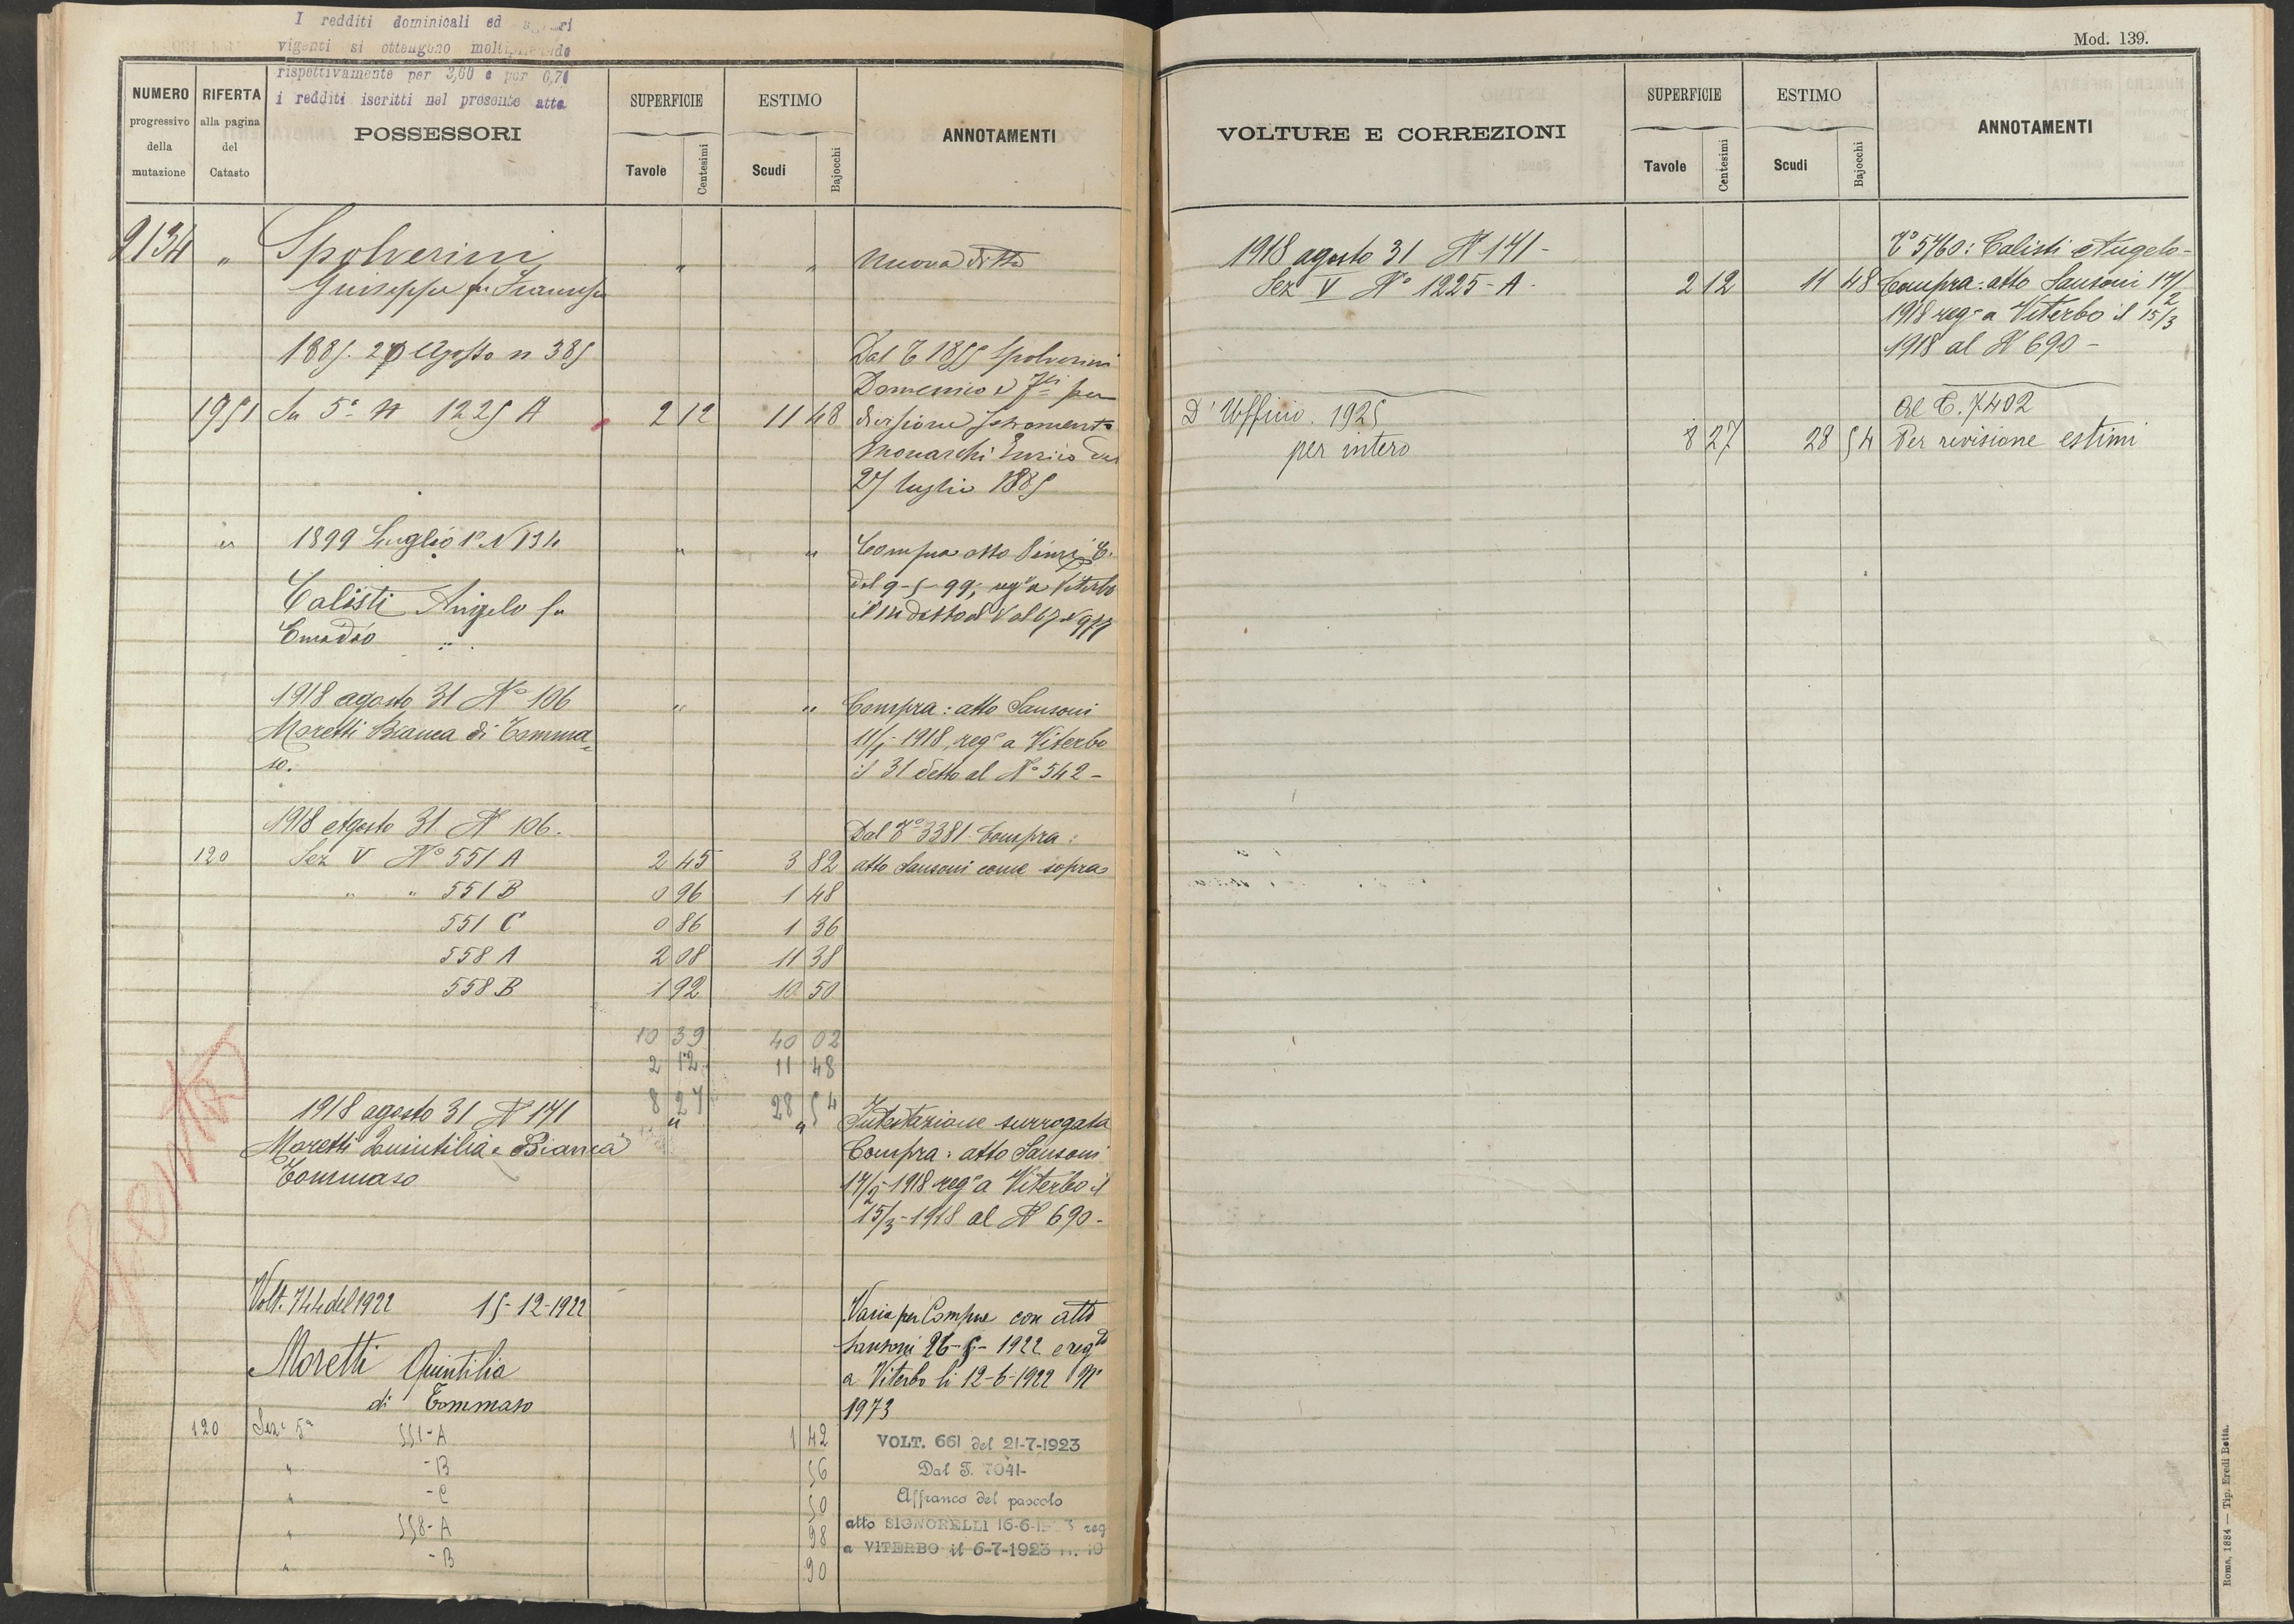 I redditi dominicali ed
vigenti si ottengono
rispettivamente per 3,60 e per 0,70
i redditi iscritti nel presente atto
NUMERO progressivo della mutazione
RIFERTA alla pagina del Catasto
POSSESSORI
SUPERFICIE
Tavole Centesimi
ESTIMO
Scudi Bajocchi
ANNOTAMENTI
2134 " Spolverini " " Nuova ditta
Giuseppe fu
1885. 20 Agosto n 385 Dal T 1855 Spolverini
Domenico e per
1951 5ª N 1225 A 2 12 11 48 divisione Istromento
Monarchi Enrico del
27 luglio 1885
" 1899 Luglio 1º N 134 " " Compra atto
del 9-5-99, regº a Viterbo
Calisti Angelo fu il detto al Vol 67
Emidio
1918 agosto 31 Nº 106 " " Compra: atto Sansoni
Moretti Bianca di Tomma= 11/1-1918, regº a Viterbo
so. il 31 detto al Nº 542-
1918 Agosto 31 Nº 106. Dal Tº 3381. Compra:
120 Sez V Nº 551 A 2 45 3 82 atto Sansoni come sopra
" " 551 B 0 96 1 48
551 C 0 86 1 36
558 A 2 08 11 38
558 B 1 92 10 50
10 39 40 02
2 12 11 48
8 27 28 54
1918 agosto 31 Nº 171 " " Intestazione surrogata
Moretti Quintilia e Bianca Compra: atto Sansoni
Tommaso 17/2-1918 regº a Viterbo il
15/3-1918 al Nº 690-
Spento
Volt. 744 del 1922 15-12-1922 Varia per Compra con atto
Sansoni 26-5-1922 e regto
Moretti Quintilia a Viterbo li 12-6-1922 Nº
di Tommaso 1973
120 Sez. 5ª 551-A 1 42 VOLT. 661 del 21-7-1923
" -B 56 Dal T. 7041-
" -C 50 Affranco del pascolo
" 558-A 98 atto SIGNORELLI 16-6-1923 reg
" -B 90 a VITERBO il 6-7-1923
Mod. 139.
VOLTURE E CORREZIONI
SUPERFICIE
Tavole Centesimi
ESTIMO
Scudi Bajocchi
ANNOTAMENTI
1918 agosto 31 Nº 171- Tº 5760: Calisti Angelo-
Sez V Nº 1225-A- 2 12 11 48 Compra: atto Sansoni 17/2
1918 regº a Viterbo il 15/3
1918 al Nº 690-
D'Ufficio. 1925 Al T. 7402
per intero 8 27 28 54 Per revisione estimi
Roma, 1884 — Tip. Eredi Botta.